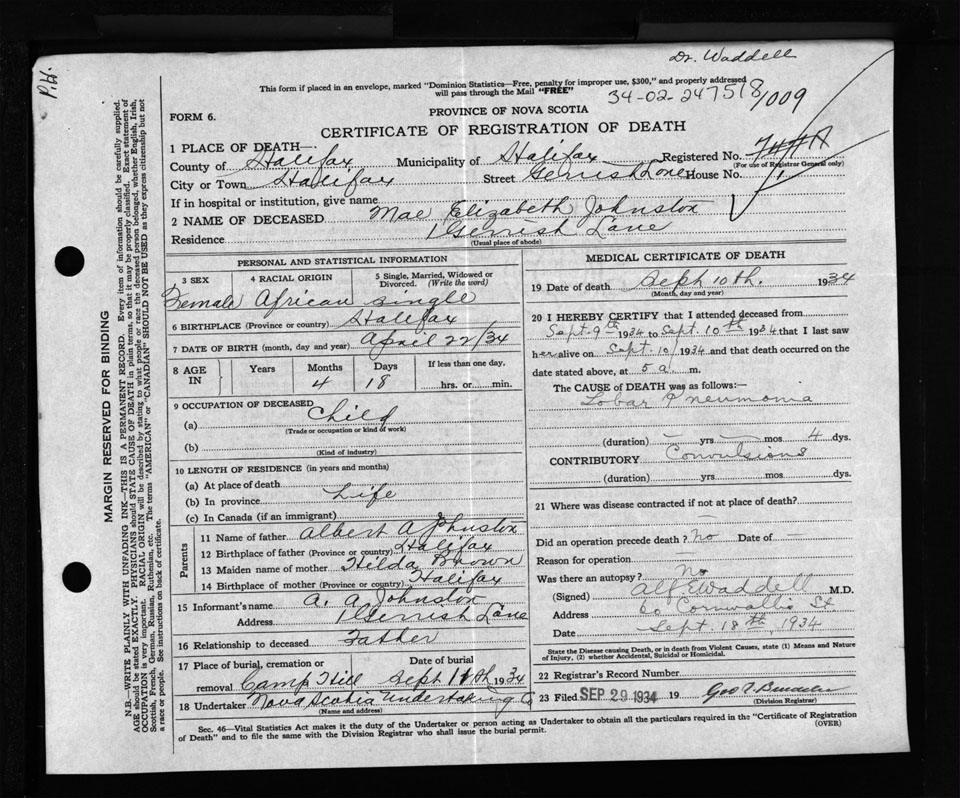 Dr. Waddell
This form if placed in an envelope, marked "Dominion Statistics—Free, penalty for improper use, $300," and properly addressed
will pass through the Mail "FREE"
34-02-247518/1009
FORM 6.
PROVINCE OF NOVA SCOTIA
CERTIFICATE OF REGISTRATION OF DEATH
1 PLACE OF DEATH—
County of Halifax Municipality of Halifax Registered No.
(For use of Registrar General only)
City or Town Halifax Street Gerrish Lane House No. 1
If in hospital or institution, give name
2 NAME OF DECEASED Mae Elizabeth Johnston
Residence 1 Gerrish Lane
(Usual place of abode)
PERSONAL AND STATISTICAL INFORMATION
3 SEX 4 RACIAL ORIGIN 5 Single, Married, Widowed or Divorced. (Write the word)
Female African single
6 BIRTHPLACE (Province or country) Halifax
7 DATE OF BIRTH (month, day and year) April 22/34
8 AGE IN Years Months Days If less than one day,
4 18 hrs. or min.
9 OCCUPATION OF DECEASED
(a) Child
(Trade or occupation or kind of work)
(b)
(Kind of industry)
10 LENGTH OF RESIDENCE (in years and months)
(a) At place of death
(b) In province Life
(c) In Canada (if an immigrant)
Parents
11 Name of father Albert A Johnston
12 Birthplace of father (Province or country) Halifax
13 Maiden name of mother Hilda Brown
14 Birthplace of mother (Province or country) Halifax
15 Informant's name A. A. Johnston
Address 1 Gerrish Lane
16 Relationship to deceased Father
17 Place of burial, cremation or removal Camp Hill Date of burial Sept 11th 1934
18 Undertaker Nova Scotia Undertaking Co
(Name and address)
MEDICAL CERTIFICATE OF DEATH
19 Date of death Sept 10th. 1934
(Month, day and year)
20 I HEREBY CERTIFY that I attended deceased from
Sept. 9th 1934 to Sept. 10th 1934 that I last saw
her alive on Sept. 10 1934 and that death occurred on the
date stated above, at 5 a m.
The CAUSE OF DEATH was as follows:—
Lobar Pneumonia
(duration) — yrs — mos 4 dys.
CONTRIBUTORY Convulsions
(duration) yrs mos dys.
21 Where was disease contracted if not at place of death?
—
Did an operation precede death? No Date of —
Reason for operation —
Was there an autopsy? No
(Signed) Alf E Waddell M.D.
Address 60 Cornwallis St
Date Sept. 18th, 1934
State the Disease causing Death, or in death from Violent Causes, state (1) Means and Nature of Injury, (2) whether Accidental, Suicidal or Homicidal.
22 Registrar's Record Number
23 Filed SEP 29 1934 19
(Division Registrar)
Sec. 46—Vital Statistics Act makes it the duty of the Undertaker or person acting as Undertaker to obtain all the particulars required in the "Certificate of Registration
of Death" and to file the same with the Division Registrar who shall issue the burial permit. (OVER)
MARGIN RESERVED FOR BINDING
N.B.—WRITE PLAINLY WITH UNFADING INK—THIS IS A PERMANENT RECORD. Every item of information should be carefully supplied.
AGE should be stated EXACTLY. PHYSICIANS should STATE CAUSE OF DEATH in plain terms, so that it may be properly classified. Exact statement of
OCCUPATION is very important. RACIAL ORIGIN will be described by stating to what people or race the deceased person belonged, whether English, Irish,
Scottish, French, German, Russian, Ruthenian, etc. The terms "AMERICAN" or "CANADIAN" SHOULD NOT BE USED as they express citizenship but not
a race or people. See instructions on back of certificate.